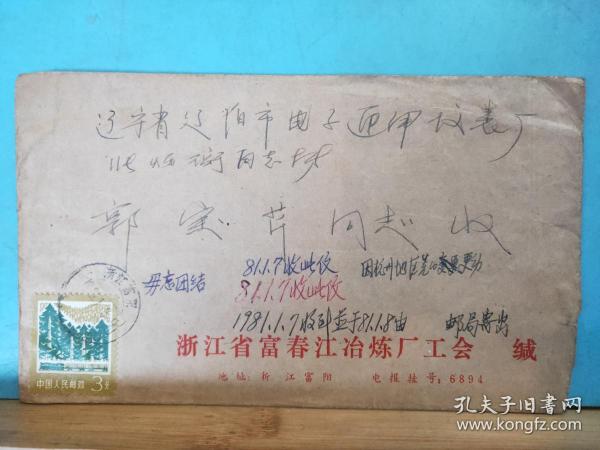 辽宁省辽阳市电子 仪表厂
同志转
郭宝萍同志收
毋忘团结 81.1.7收此仪 因杭州地区 变更动
81.1.7收此仪
1981.1.7收到并于81.1.8由 邮局寄出
浙江富阳
中国人民邮政 3分
浙江省富春江冶炼厂工会 缄
地址:浙江富阳 电报挂号:6894
孔夫子旧书网
www.kongfz.com